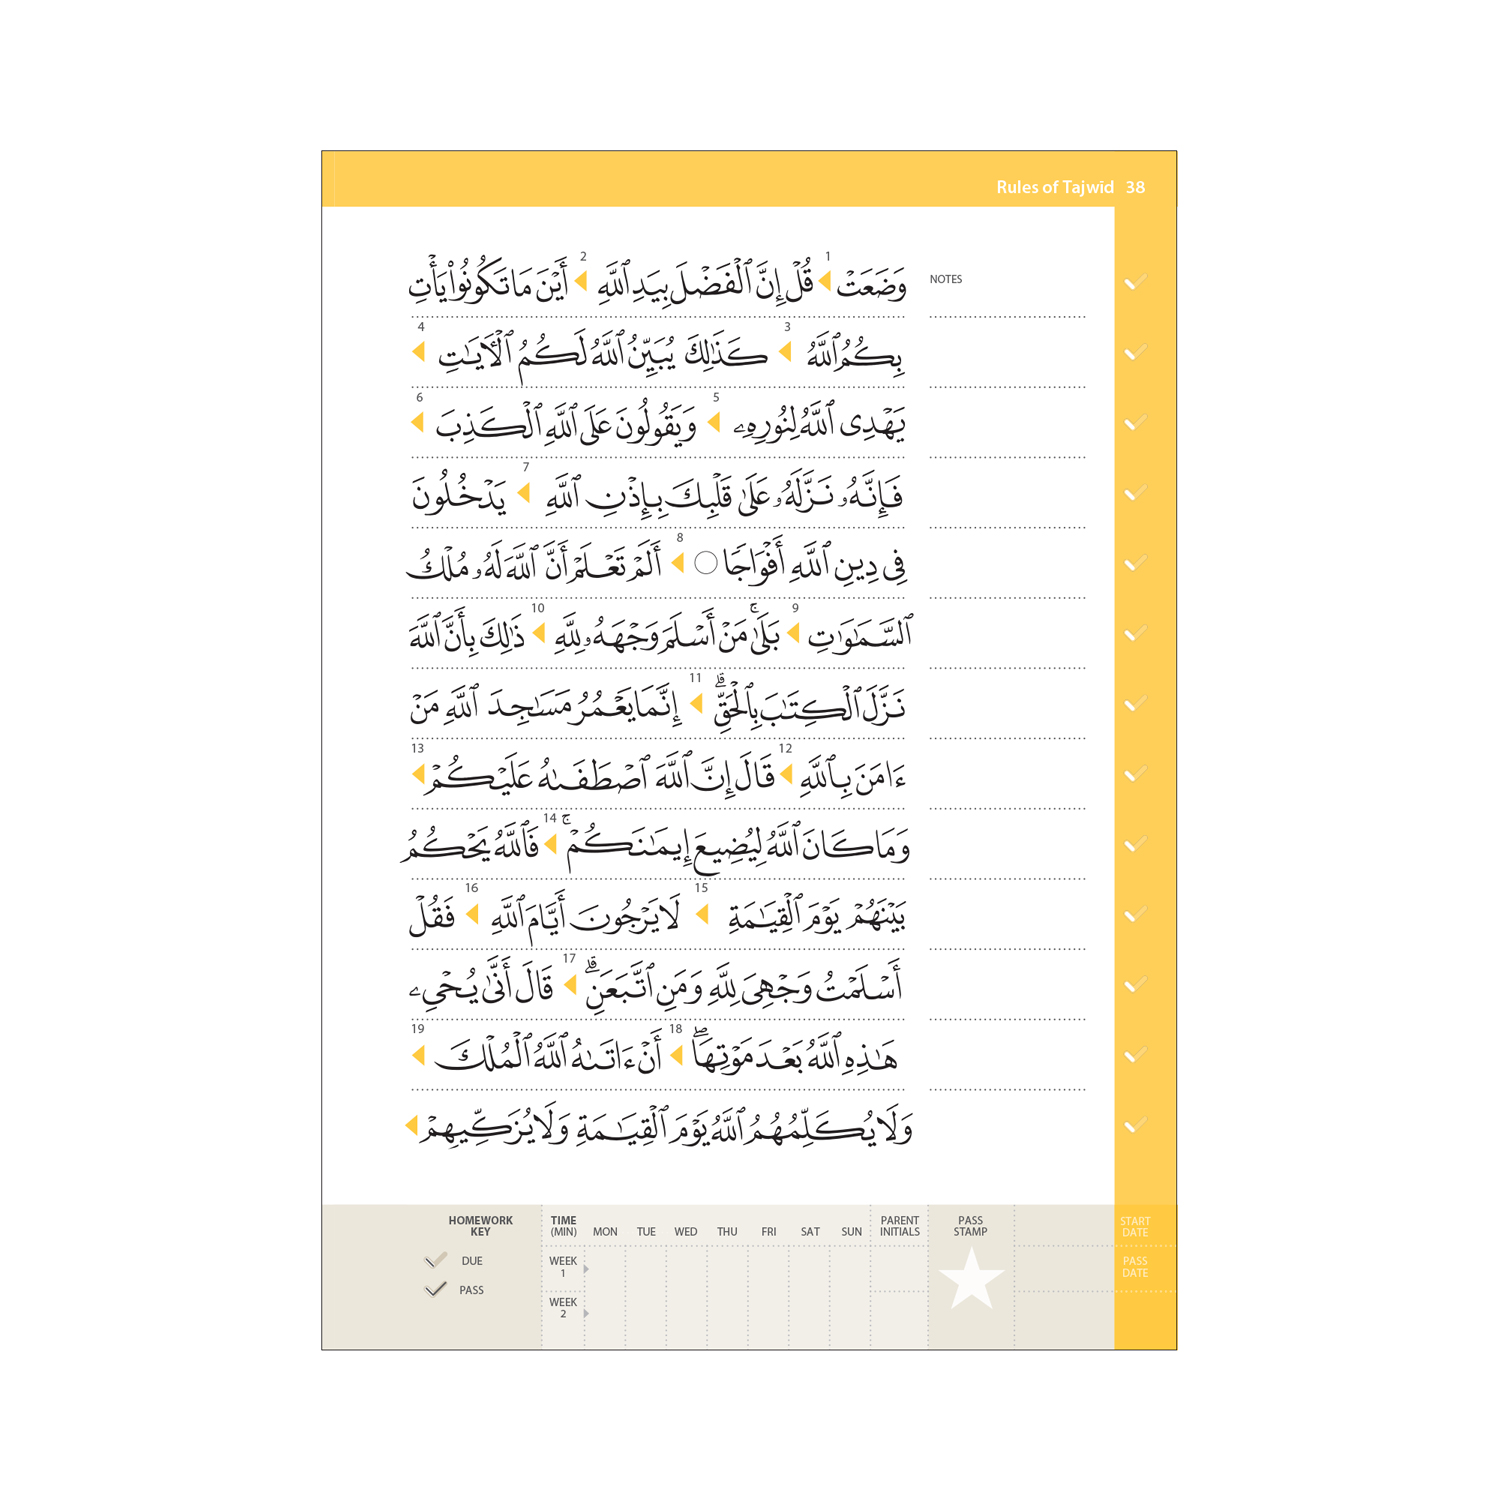 Rules of Tajwīd 38
1 2
وَضَعَتْ قُلْ إِنَّ ٱلْفَضْلَ بِيَدِ ٱللَّهِ أَيْنَ مَا تَكُونُوا۟ يَأْتِ
NOTES
3 4
بِكُمُ ٱللَّهُ كَذَٰلِكَ يُبَيِّنُ ٱللَّهُ لَكُمُ ٱلْـَٔايَـٰتِ
5 6
يَهْدِى ٱللَّهُ لِنُورِهِۦ وَيَقُولُونَ عَلَى ٱللَّهِ ٱلْكَذِبَ
7
فَإِنَّهُۥ نَزَّلَهُۥ عَلَىٰ قَلْبِكَ بِإِذْنِ ٱللَّهِ يَدْخُلُونَ
8
فِى دِينِ ٱللَّهِ أَفْوَاجًا ۝ أَلَمْ تَعْلَمْ أَنَّ ٱللَّهَ لَهُۥ مُلْكُ
9 10
ٱلسَّمَـٰوَٰتِ بَلَىٰ ۚ مَنْ أَسْلَمَ وَجْهَهُۥ لِلَّهِ ذَٰلِكَ بِأَنَّ ٱللَّهَ
11
نَزَّلَ ٱلْكِتَـٰبَ بِٱلْحَقِّ ۗ إِنَّمَا يَعْمُرُ مَسَـٰجِدَ ٱللَّهِ مَنْ
12 13
ءَامَنَ بِٱللَّهِ قَالَ إِنَّ ٱللَّهَ ٱصْطَفَىٰهُ عَلَيْكُمْ
14
وَمَا كَانَ ٱللَّهُ لِيُضِيعَ إِيمَـٰنَكُمْ ۚ فَٱللَّهُ يَحْكُمُ
15 16
بَيْنَهُمْ يَوْمَ ٱلْقِيَـٰمَةِ لَا يَرْجُونَ أَيَّامَ ٱللَّهِ فَقُلْ
17
أَسْلَمْتُ وَجْهِىَ لِلَّهِ وَمَنِ ٱتَّبَعَنِ ۗ قَالَ أَنَّىٰ يُحْىِۦ
18 19
هَـٰذِهِ ٱللَّهُ بَعْدَ مَوْتِهَا ۖ أَنْ ءَاتَىٰهُ ٱللَّهُ ٱلْمُلْكَ
وَلَا يُكَلِّمُهُمُ ٱللَّهُ يَوْمَ ٱلْقِيَـٰمَةِ وَلَا يُزَكِّيهِمْ
HOMEWORK KEY
DUE
PASS
TIME (MIN) MON TUE WED THU FRI SAT SUN PARENT INITIALS PASS STAMP START DATE
WEEK 1
PASS DATE
WEEK 2